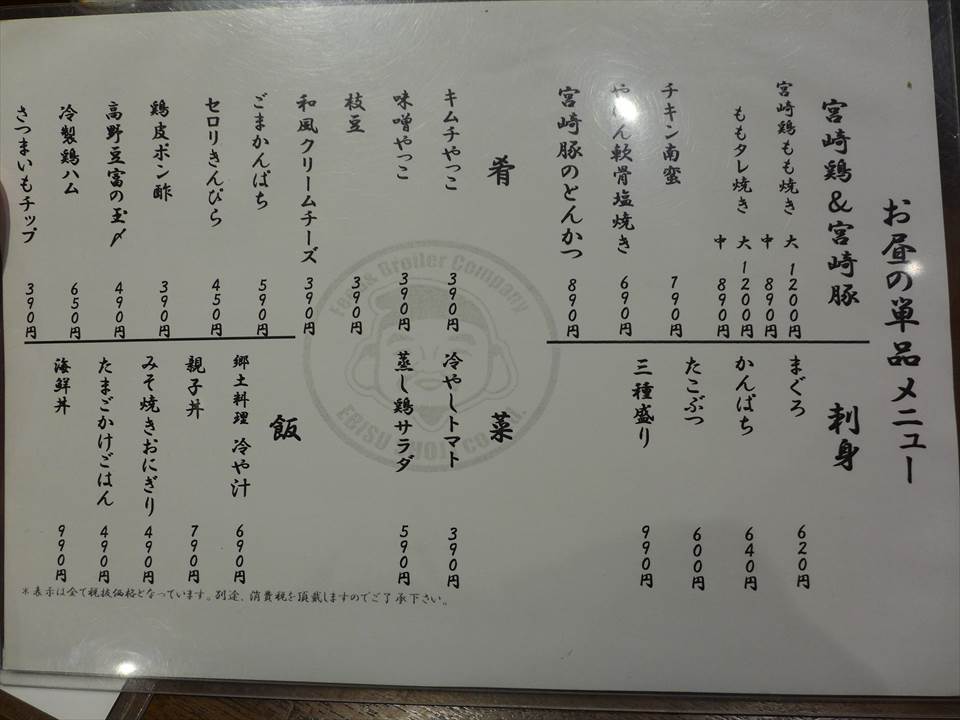 お昼の単品メニュー
宮崎鶏&宮崎豚
宮崎鶏もも焼き 大 1200円
中 890円
ももタレ焼き 大 1200円
中 890円
チキン南蛮 790円
やげん軟骨塩焼き 690円
宮崎豚のとんかつ 890円
刺身
まぐろ 620円
かんぱち 640円
たこぶつ 600円
三種盛り 990円
肴
キムチやっこ 390円
味噌やっこ 390円
枝豆 390円
和風クリームチーズ 390円
ごまかんぱち 590円
セロリきんぴら 450円
鶏皮ポン酢 390円
高野豆富の玉〆 490円
冷製鶏ハム 650円
さつまいもチップ 390円
菜
冷やしトマト 390円
蒸し鶏サラダ 590円
飯
郷土料理 冷や汁 690円
親子丼 790円
みそ焼きおにぎり 490円
たまごかけごはん 490円
海鮮丼 990円
*表示は全て税抜価格となっています。別途、消費税を頂戴しますのでご了承下さい。
Broiler Company
EBISU